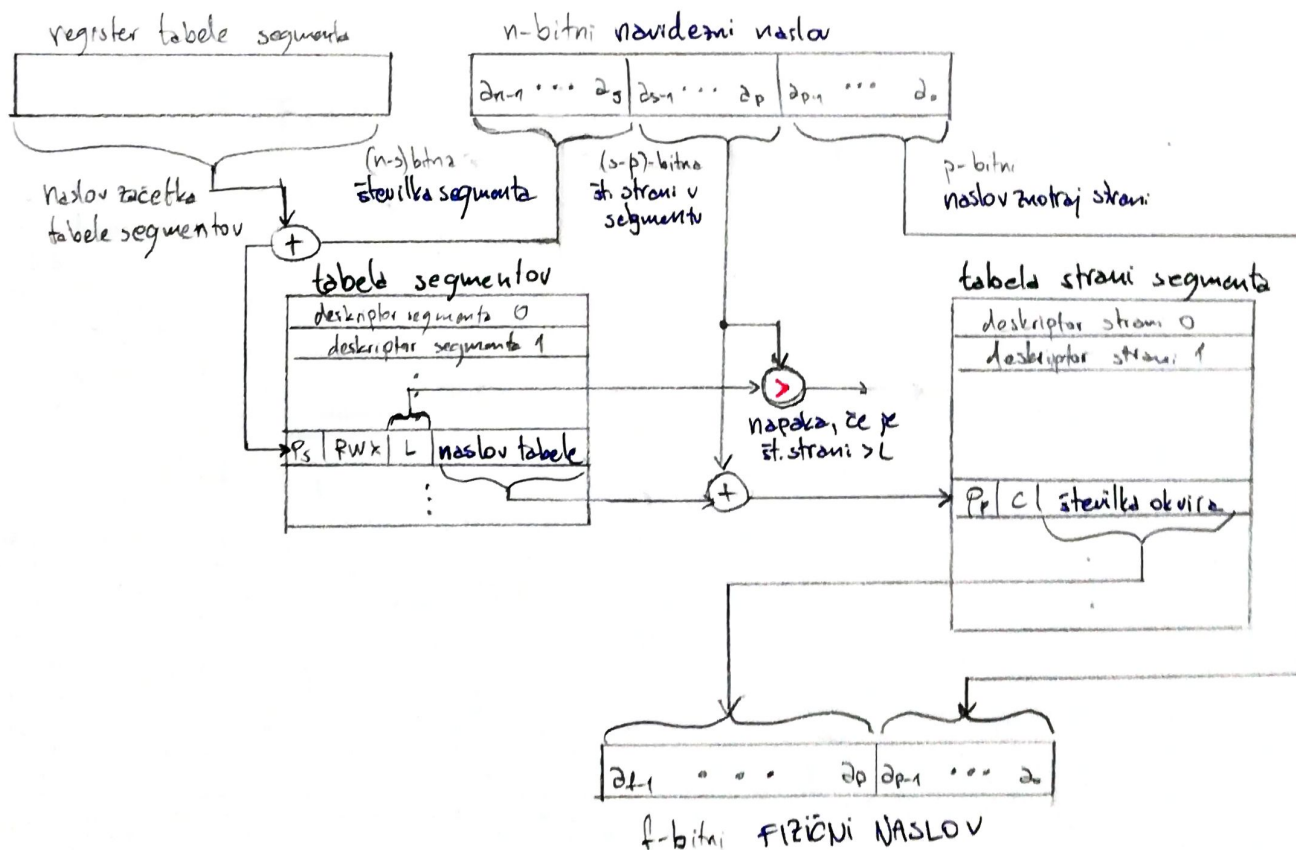 register tabele segmenta
n-bitni navidezni naslov
a_{n-1} ... a_s
a_{s-1} ... a_p
a_{p-1} ... a_0
naslov začetka
tabele segmentov
+
(n-s)bitna
številka segmenta
(s-p)-bitna
št. strani v
segmentu
p-bitni
naslov znotraj strani
tabela segmentov
deskriptor segmenta 0
deskriptor segmenta 1
P_s | RWX | L | naslov tabele
>
napaka, če je
št. strani > L
+
tabela strani segmenta
deskriptor strani 0
deskriptor strani 1
P_p | C | številka okvira
a_{f-1} ... a_p
a_{p-1} ... a_0
f-bitni FIZIČNI NASLOV